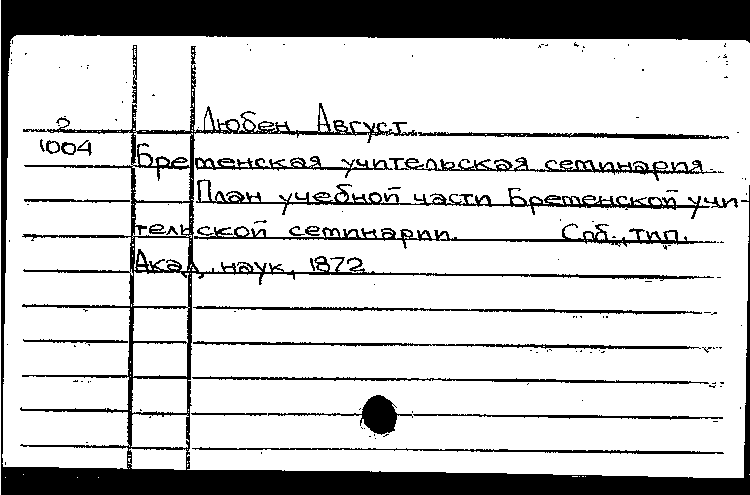 Любен, Август.
2
1004
Бременская учительская семинария.
План учебной части Бременской учи-
тельской семинарии. Спб., тип.
Акад. наук, 1872.